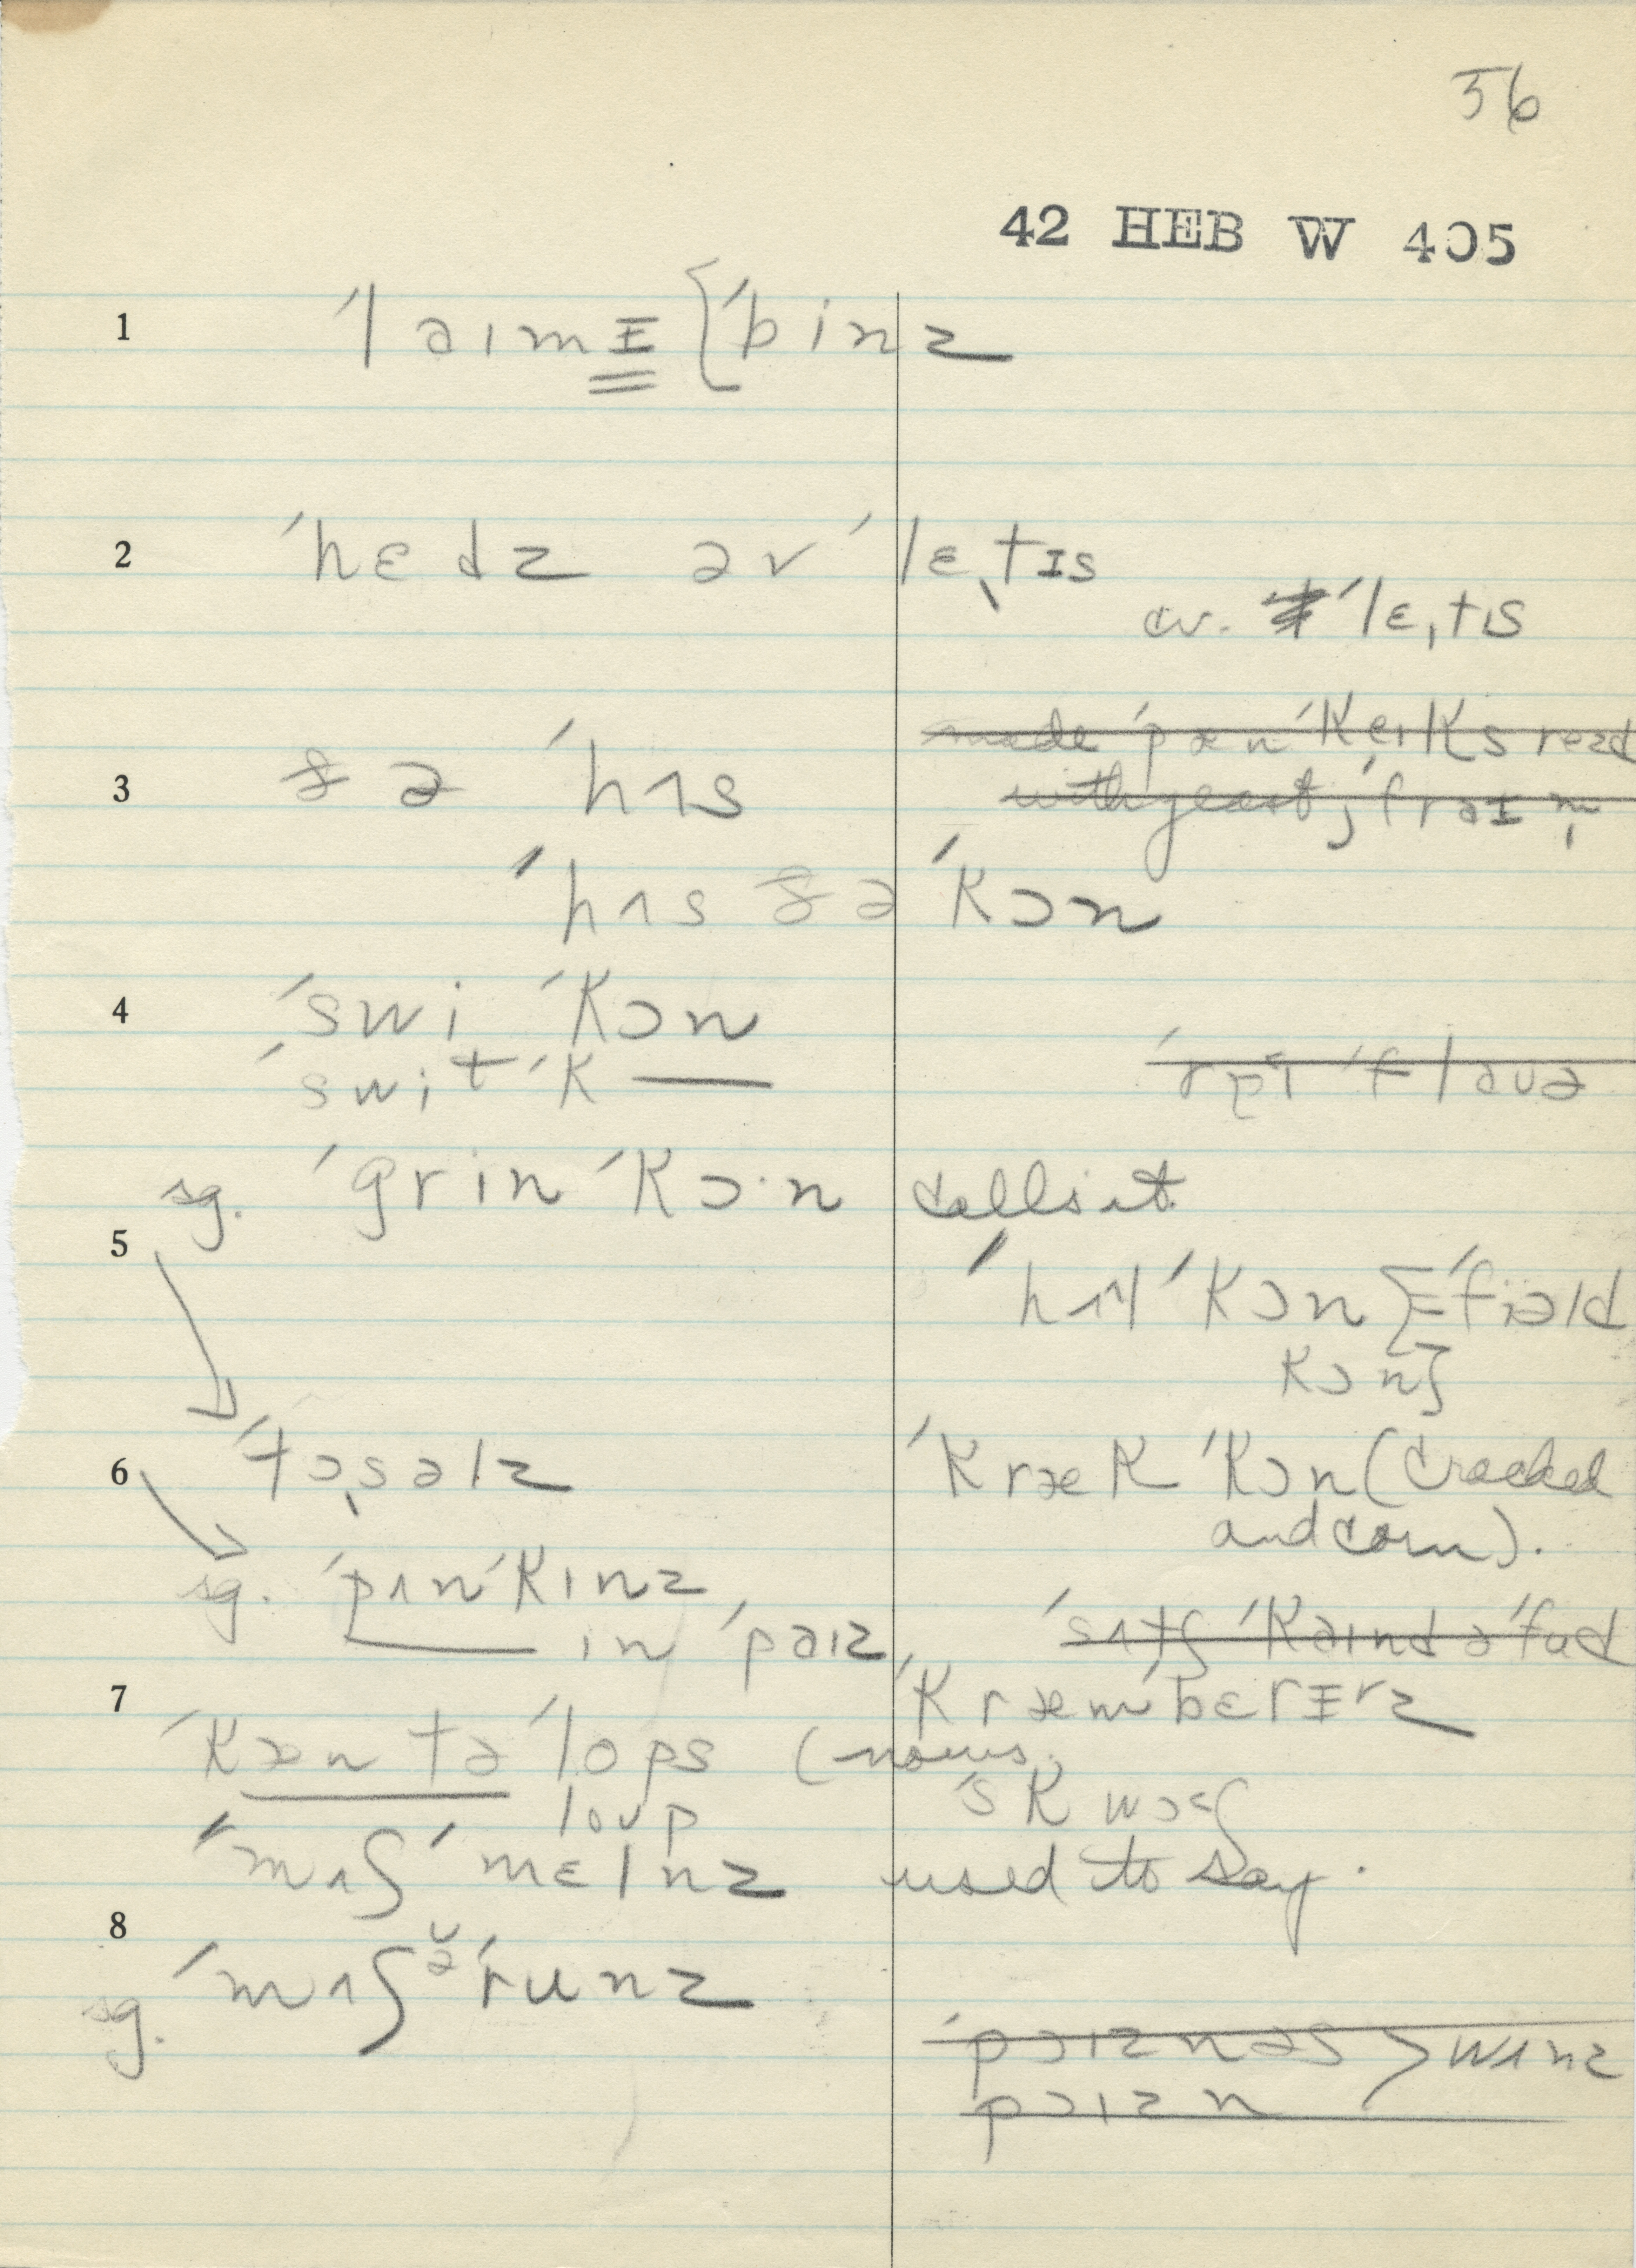 56
42 HEB W 405
1 ˈlaɪmɪ {ˈbinz
2 ˈhɛdz əv ˈlɛ̖tɪs
cv. ˈlɛ̩tɪs
made ˈpænˈkeɪks read
3 ðə ˈhʌs
with yeast; ˈfraɪ m̩
ˈhʌs ðə ˈkɔn
4 ˈswi ˈkɔn
ˈswit ˈk ——
flaʊə
sg. ˈgrin ˈkɔ·n calls it
5
ˈkɔn [ˈfiəld
kɔn]
6 ˈtɔ̖səlz ˈkræk ˈkɔn (cracked
and corn).
sg. ˈpʌnˈkɪnz
—— in ˈpaɪz
ˈsʌtʃ ˈkaɪnd ə ˈfud
7 ˈkræmˈbɛrɪz
ˈkæntəˈlops (nows.
loʊp
ˈmʌʃ ˈmɛlnz used to say.
8
sg. ˈmʌʃə̆ˈrunz
ˈpɔɪznəs > wʌnz
pɔɪzn